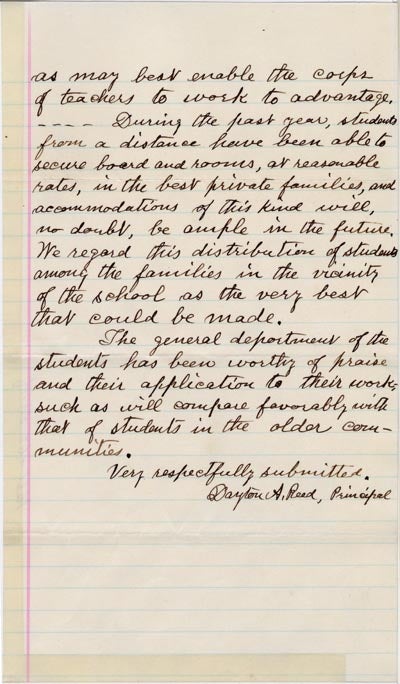 as may best enable the corps
of teachers to work to advantage.
---- During the past year, students
from a distance have been able to
secure board and rooms, at reasonable
rates, in the best private families, and
accommodations of this kind will,
no doubt, be ample in the future.
We regard this distribution of students
among the families in the vicinity
of the school as the very best
that could be made.
The general department of the
students has been worthy of praise
and their application to their work,
such as will compare favorably with
that of students in the older com-
munities.
Very respectfully submitted.
Dayton A. Reed, Principal